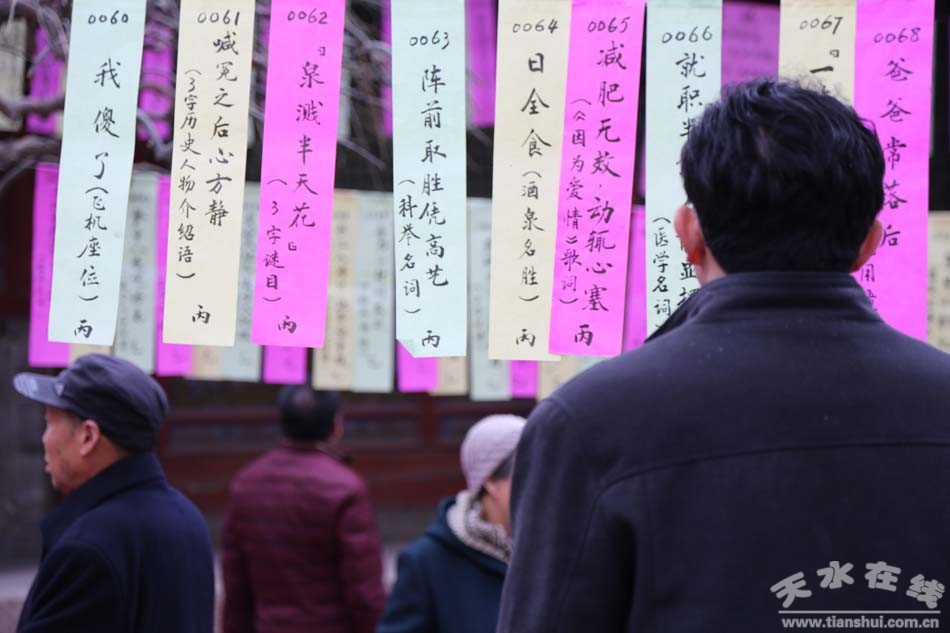 0060
我傻了(飞机座位)
丙
0061
喊冤之后心方静
(3字历史人物介绍语)
丙
0062
『泉溅半天花』
(3字谜目)
丙
0063
阵前取胜凭高艺
(科举名词)
丙
0064
日全食(酒泉名胜)
丙
0065
减肥无效·动辄心塞
(《因为爱情》歌词)
丙
0066
就职
(医学名词)
0067
0068
爸爸常落后
天水在线
www.tianshui.com.cn